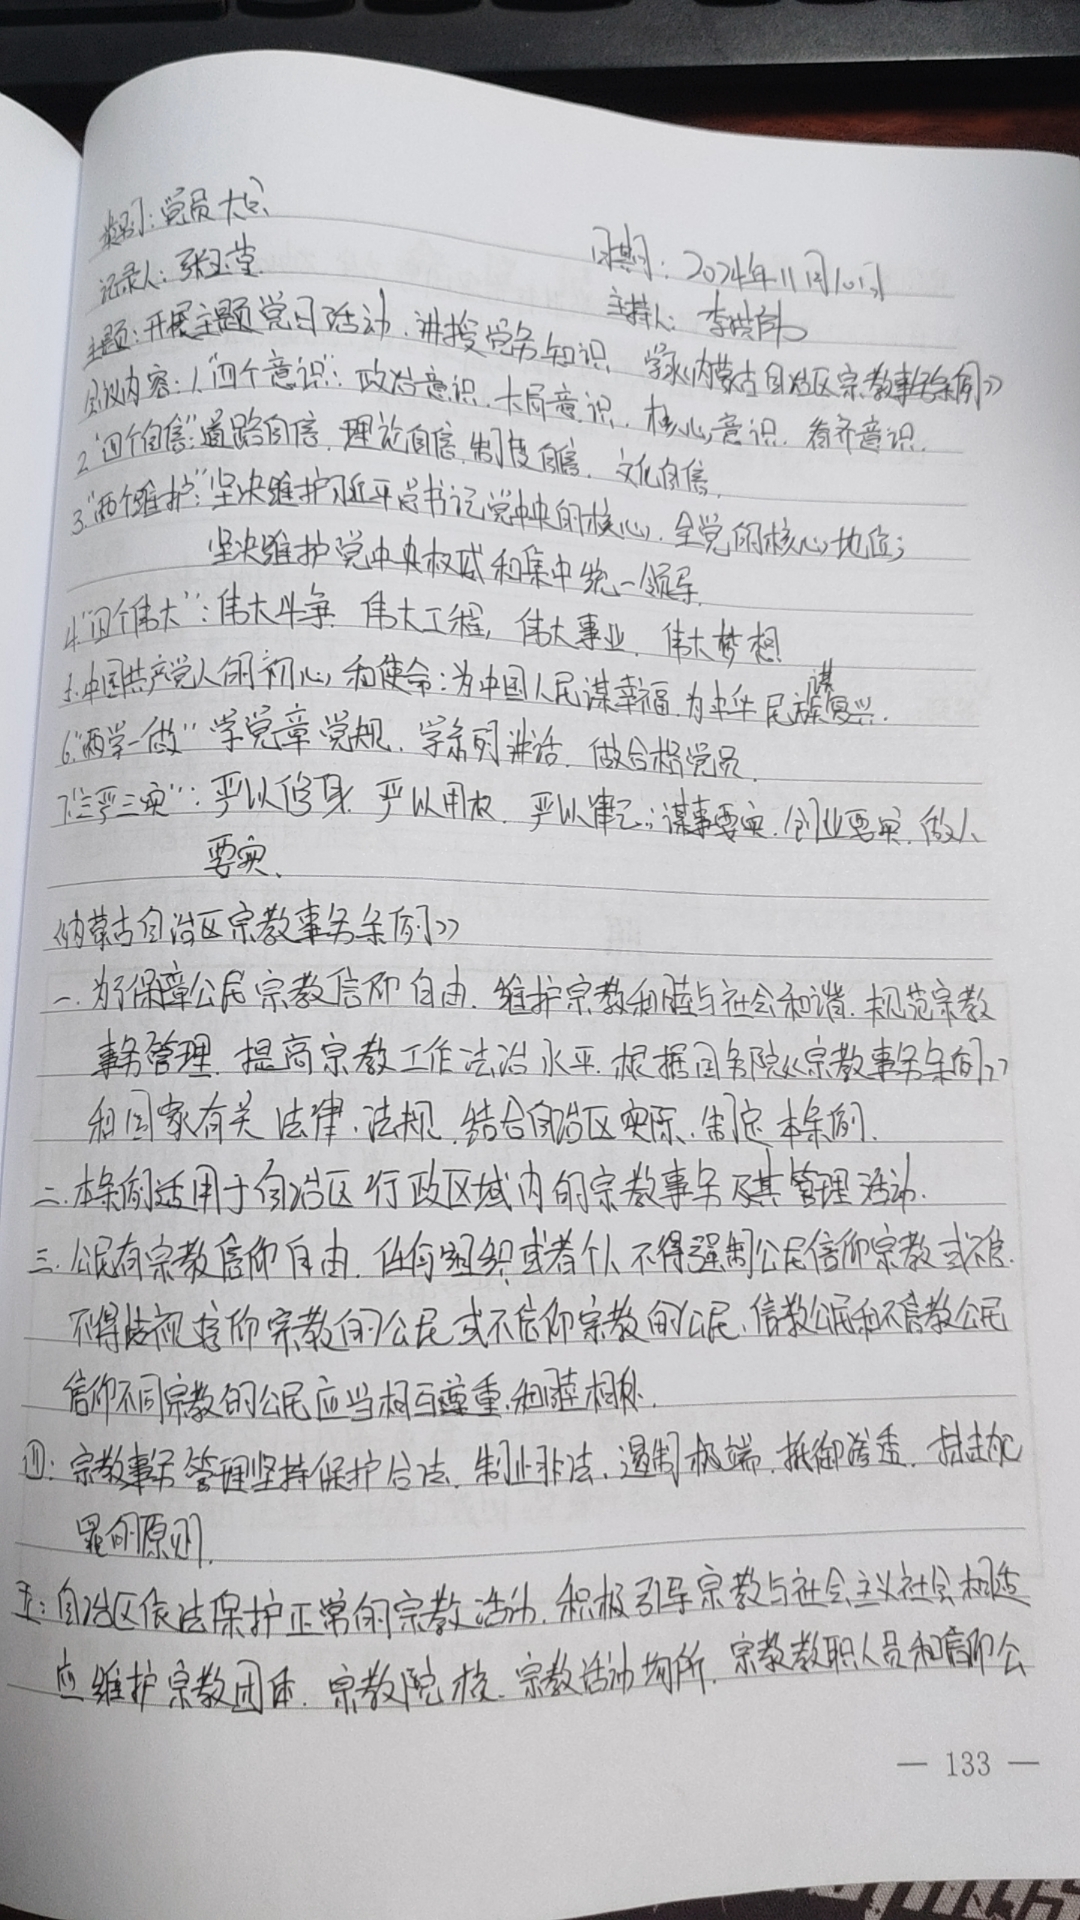 类别：党员大会
日期：2024年11月10日
记录人：张玉莹
主持人：李
主题：开展主题党日活动、讲授党务知识、学习《内蒙古自治区宗教事务条例》
会议内容：1."四个意识"：政治意识、大局意识、核心意识、看齐意识.
2."四个自信"：道路自信、理论自信、制度自信、文化自信.
3."两个维护"：坚决维护习近平总书记党中央的核心、全党的核心地位；
坚决维护党中央权威和集中统一领导.
4."四个伟大"：伟大斗争、伟大工程，伟大事业、伟大梦想
5.中国共产党人的初心和使命：为中国人民谋幸福、为中华民族谋复兴.
6."两学一做"学党章党规、学系列讲话、做合格党员.
7."三严三实"：严以修身、严以用权、严以律己；谋事要实、创业要实、做人
要实、
《内蒙古自治区宗教事务条例》
一.为了保障公民宗教信仰自由、维护宗教和睦与社会和谐、规范宗教
事务管理、提高宗教工作法治水平.根据国务院《宗教事务条例》
和国家有关法律、法规、结合自治区实际、制定本条例.
二.本条例适用于自治区行政区域内的宗教事务及其管理活动.
三.公民有宗教信仰自由.任何组织或者个人不得强制公民信仰宗教或不信.
不得歧视信仰宗教的公民或不信仰宗教的公民、信教公民和不信教公民
信仰不同宗教的公民应当相互尊重、和睦相处.
四：宗教事务管理坚持保护合法、制止非法、遏制极端、抵御渗透、打击犯
罪的原则.
五：自治区依法保护正常的宗教活动.积极引导宗教与社会主义社会相适
应维护宗教团体、宗教院校、宗教活动场所、宗教教职人员和信仰公
— 133 —